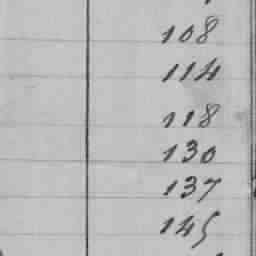 108
114
118
130
137
145